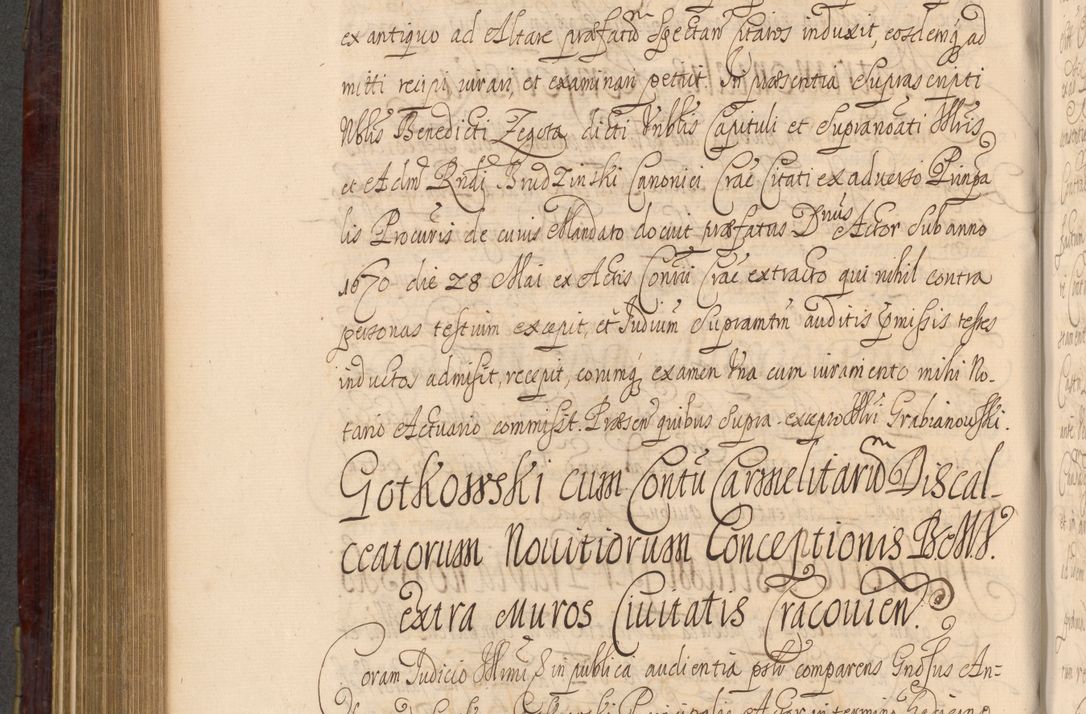 ex antiquo ad Altare præfatũ Spectan̄ citatos induxit, eosdemq̨ ad
mitti recipi iurari, et examinari petiit. In præsentia Suprascripti
Nblis Benedicti Zegota dicti Vnblis Capituli et Supranoati Illris
et Adm̃ Rndi Brudzinski Canonici Crac̃ Citati ex adverso Principa
lis Procuris de cuius Mandato docuit præfatus Dnus Actor Sub anno
1670 die 28 Mai ex Actis Consũ Crac̃ extracto qui nihil contra
personas testium excepit, et Judium Supramtm̃ auditis p̃missis testes
inductos admisit, recepit, eorumq̨ examen Vna cum iuramento mihi No-
tario Actuario commisit. Præsen̄ quibus Supra. excepto Illri Grabianowski.
Gotkowski cum Contũ Carmelitarũ Discal-
ceatorum Novitiorum Conceptionis BeMV.
extra Muros Civitatis Cracovien̄.
Coram Judicio Illmi & in publica audientia pslr̃ comparens Gnosus An-